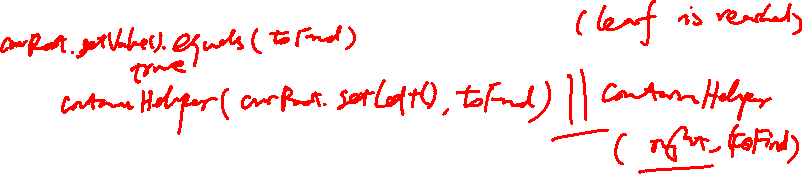 (leaf is reached)
curRoot.getValue().equals(toFind)
true
containsHelper(curRoot.getLeft(), toFind) || containsHelper
(right, toFind)